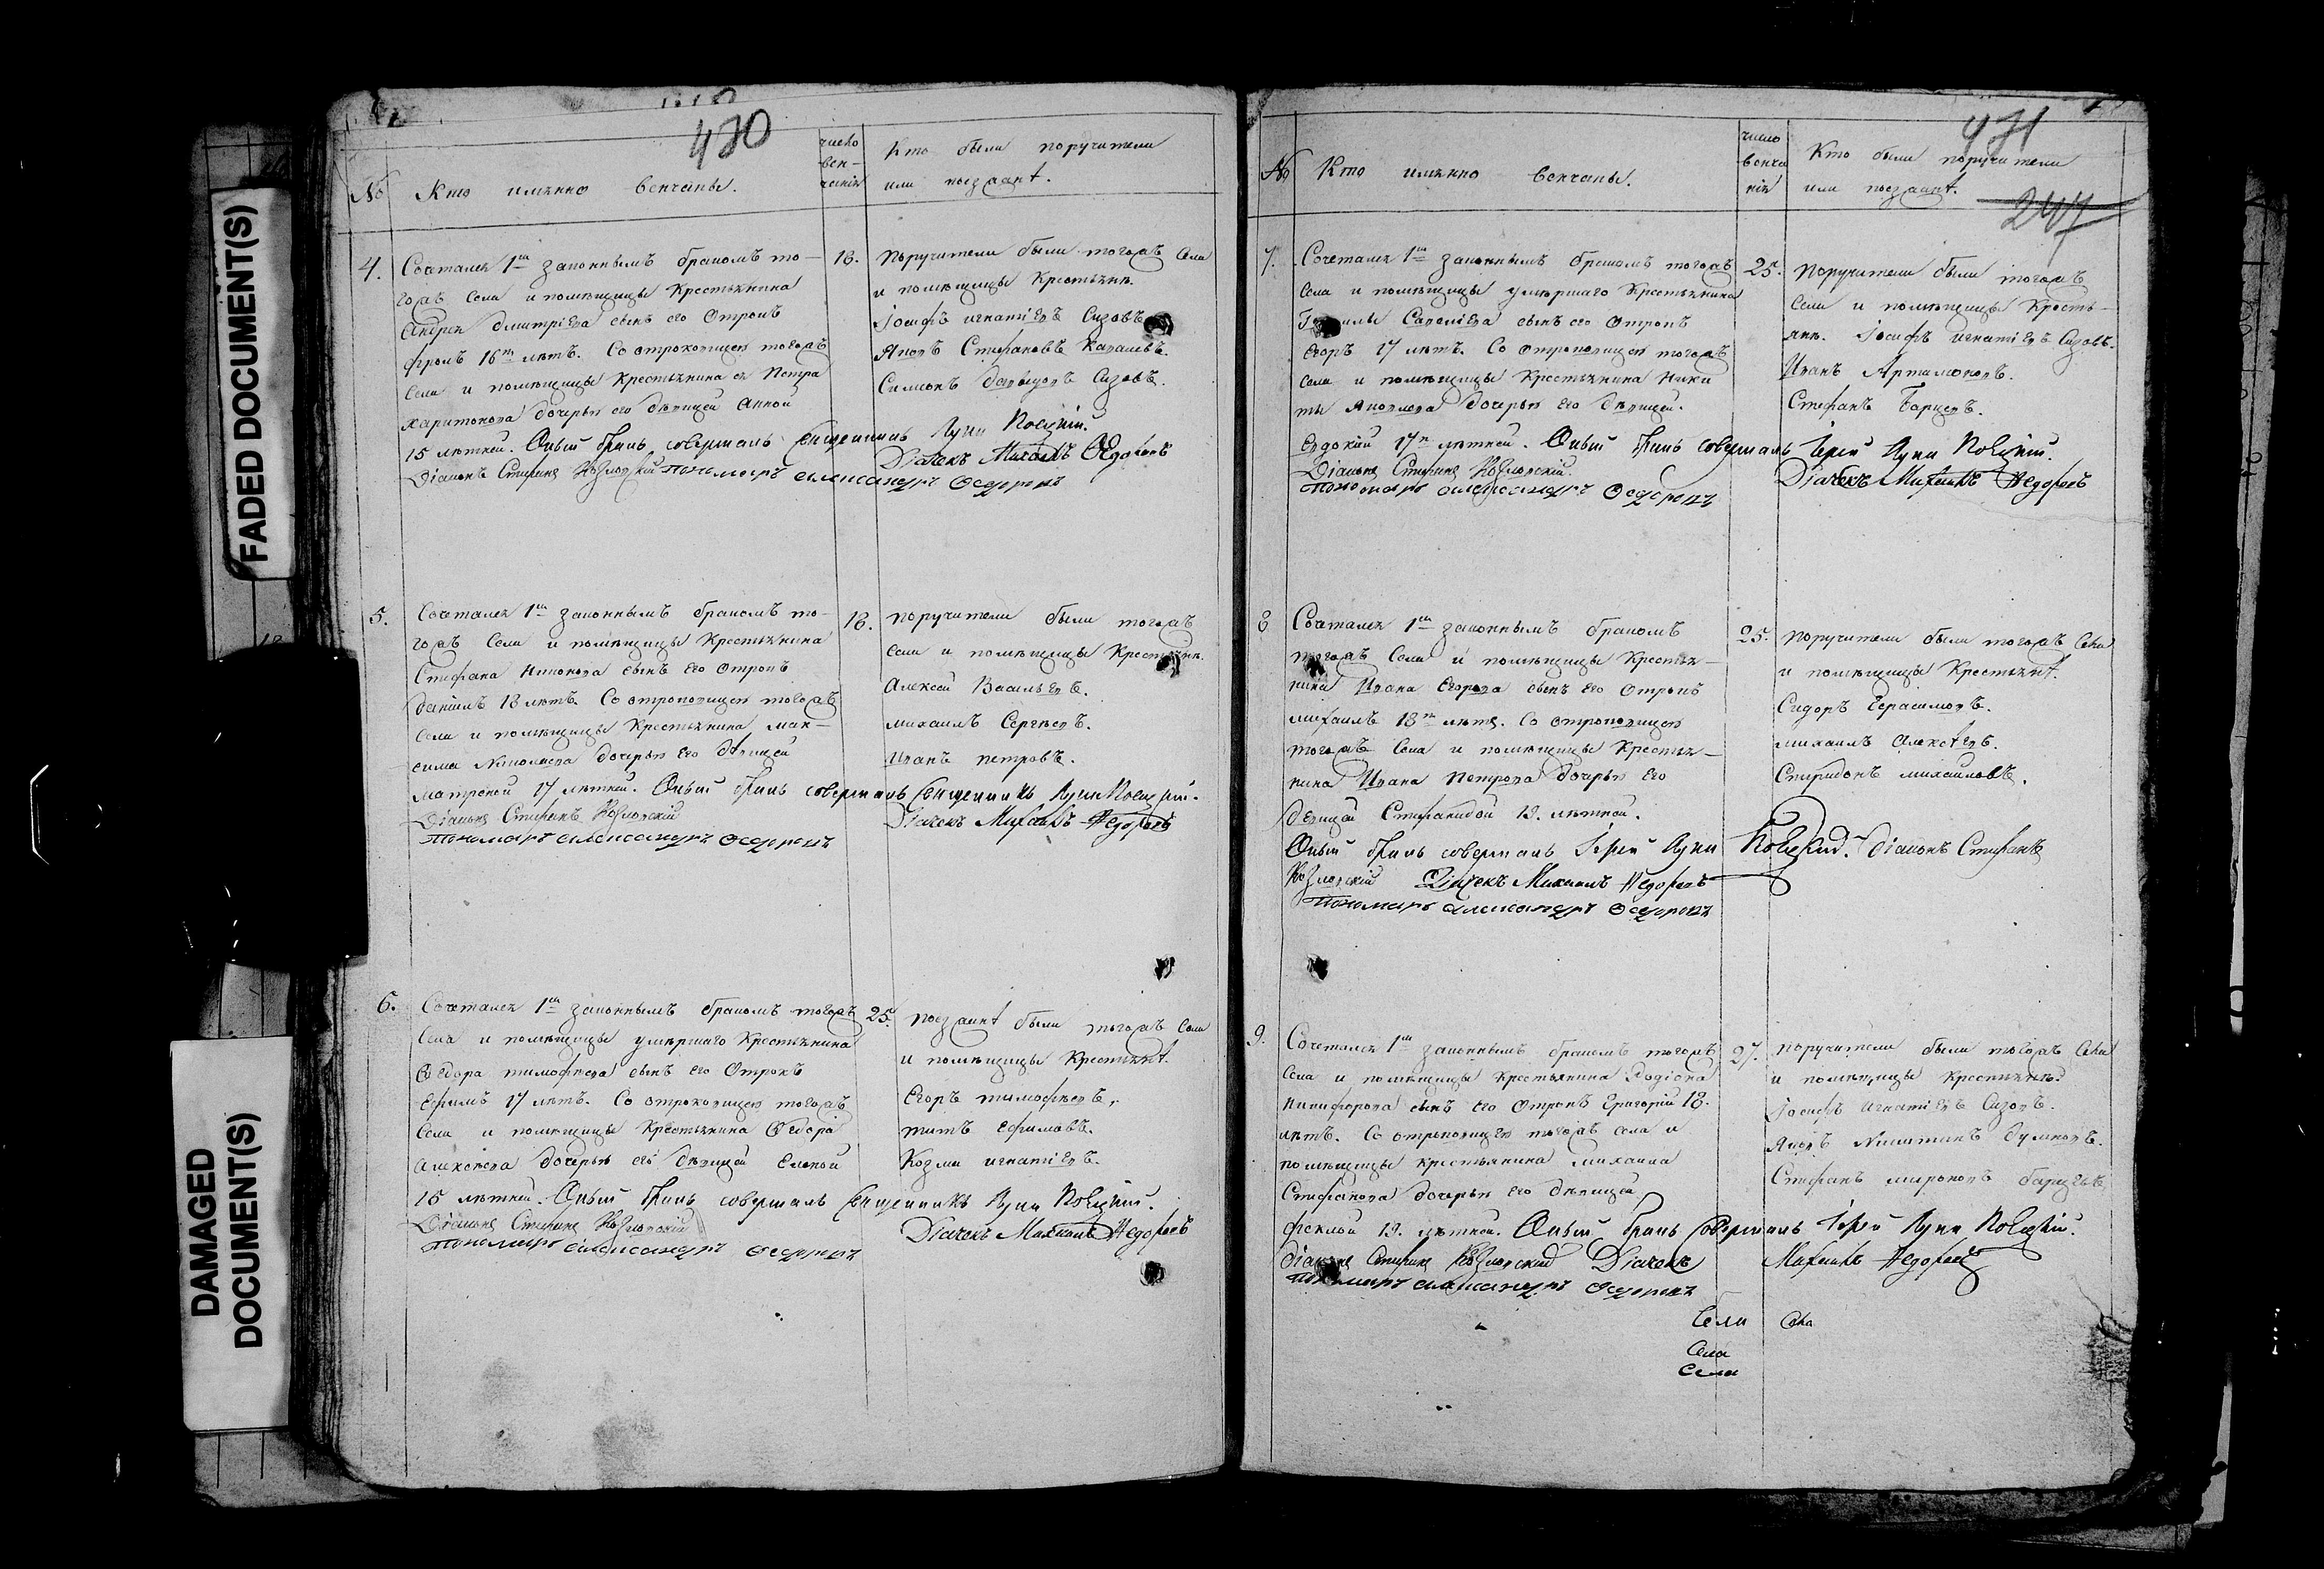 FADED DOCUMENT(S)
DAMAGED
DOCUMENT(S)
430
№
Кто имянно венчаны.
число
вен-
чанія
Кто были поручители
или поезжанѣ.
4.
Сочтался 1м законнымъ бракомъ то-
гожъ села и помѣщицы Крестьянина
Андрея Дмитріева сынъ его Отрокъ
Фролъ 16ти лѣтъ. Со отроковицею тогожъ
села и помѣщицы Крестьянина Петра
Харитонова дочерью его дѣвицей Анной
15 лѣтней. Оный бракъ совершалъ Священникъ Лука
Діаконъ Стефанъ Козловскій Пономарь Александръ Ѳедоровъ
18.
Поручители были тогожъ Села
и помѣщицы Крестьянѣ.
Іосифъ Игнатіевъ Сизовъ
Яковъ Стефановъ
Симеонъ Давыдовъ Сизовъ.
Дiачекъ Михаилъ Ѳедоровъ
5.
Сочетался 1м законнымъ бракомъ то-
гожъ Села и помѣщицы Крестьянина
Стефана Никонова сынъ его Отрокъ
Данiилъ 18 лѣтъ. Со отроковицею тогожъ
Села и помѣщицы Крестьянина Мак-
сима Николаева дочерью его дѣвицей
Матреной 17 лѣтней. Оный бракъ совершалъ Священникъ Лука
Діаконъ Стефанъ Козловскій
Пономарь Александръ Ѳедоровъ
18.
Поручители были тогожъ
Села и помѣщицы Крестьянѣ.
Алексей Васильевъ.
Михаилъ Сергѣевъ.
Иванъ Петровъ.
Дiачекъ Михаилъ Ѳедоровъ
6.
Сочетался 1м законнымъ бракомъ тогожъ
Села и помѣщицы умершаго Крестьянина
Ѳедора Тимофѣева сынъ его Отрокъ
Ефимъ 17 лѣтъ. Со отроковицею тогожъ
Села и помѣщицы Крестьянина Ѳедора
Алексѣева дочерью его дѣвицей Еленой
15 лѣтней. Оный бракъ совершалъ Священникъ Лука
Діаконъ Стефанъ Козловскій
Пономарь Александръ Ѳедоровъ
25.
Поезжанѣ были тогожъ Села
и помѣщицы Крестьянѣ.
Егоръ Тимофѣевъ.
Титъ Ефимовъ.
Козма Игнатіевъ.
Дiачекъ Михаилъ Ѳедоровъ
431
№
Кто имянно венчаны.
число
венча
нія
Кто были поручители
или поезжанѣ.
247
7.
Сочетался 1м законнымъ бракомъ тогожъ
Села и помѣщицы умершаго Крестьянина
Савеліева сынъ его Отрокъ
Егоръ 17 лѣтъ. Со отроковицею тогожъ
Села и помѣщицы Крестьянина Ники
ты Яковлева дочерью его дѣвицей.
Евдокiй 17ти лѣтней. Оный бракъ совершалъ Іерей Лука
Діаконъ Стефанъ Козловскій
Пономарь Александръ Ѳедоровъ
25.
Поручители были тогожъ
Села и помѣщицы Кресть-
янѣ. Іосифъ Игнатіевъ Сизовъ.
Иванъ Артамоновъ.
Стефанъ
Дiачекъ Михаилъ Ѳедоровъ
8
Сочтался 1м законнымъ бракомъ
тогожъ Села и помѣщицы Крестья-
нина Ивана Егорова сынъ его Отрокъ
Михаилъ 18ти лѣтъ. Со отроковицею
тогожъ Села и помѣщицы Крестья-
нина Ивана Петрова дочерью его
дѣвицей Стефанидой 19. лѣтней.
Оный бракъ совершалъ Іерей Лука Діаконъ Стефанъ
Козловскій Дiачекъ Михаилъ Ѳедоровъ
Пономарь Александръ Ѳедоровъ
25.
Поручители были тогожъ Села
и помѣщицы Крестьянѣ.
Сидоръ Герасимовъ.
Михаилъ Алексѣевъ.
Спиридонъ Михайловъ.
9.
Сочетался 1м законнымъ бракомъ тогожъ
Села и помѣщицы Крестьянина Родіона
Никифорова сынъ его Отрокъ Григорій 18.
лѣтъ. Со отроковицею тогожъ села и
помѣщицы крестьянина Михаила
Стефанова дочерью его дѣвицей
Феклой 19. лѣтней. Оный бракъ совершалъ Іерей Лука
Діаконъ Стефанъ Козловский Дiачекъ Михаилъ Ѳедоровъ
Пономарь Александръ Ѳедоровъ
27.
Поручители были тогожъ Села
и помѣщицы Крестьянѣ.
Іосифъ Игнатіевъ Сизовъ.
Яковъ
Стефанъ Мироновъ
Села Села
Села
Села